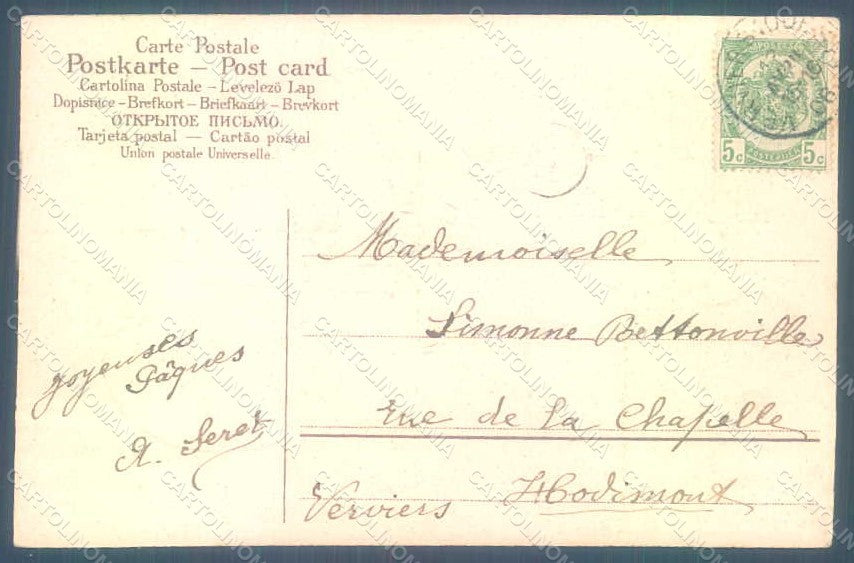 Carte Postale
Postkarte – Post card
Cartolina Postale – Levelező Lap
Dopisnice – Brefkort – Briefkaart – Brevkort
ОТКРЫТОЕ ПИСЬМО.
Tarjeta postal — Cartão postal
Union postale Universelle.
5c 5c
Mademoiselle
Simonne Bettonville
rue de la Chapelle
Hodimont
Verviers
joyeuses
Pâques
A. Seret
CARTOLINOMANIA